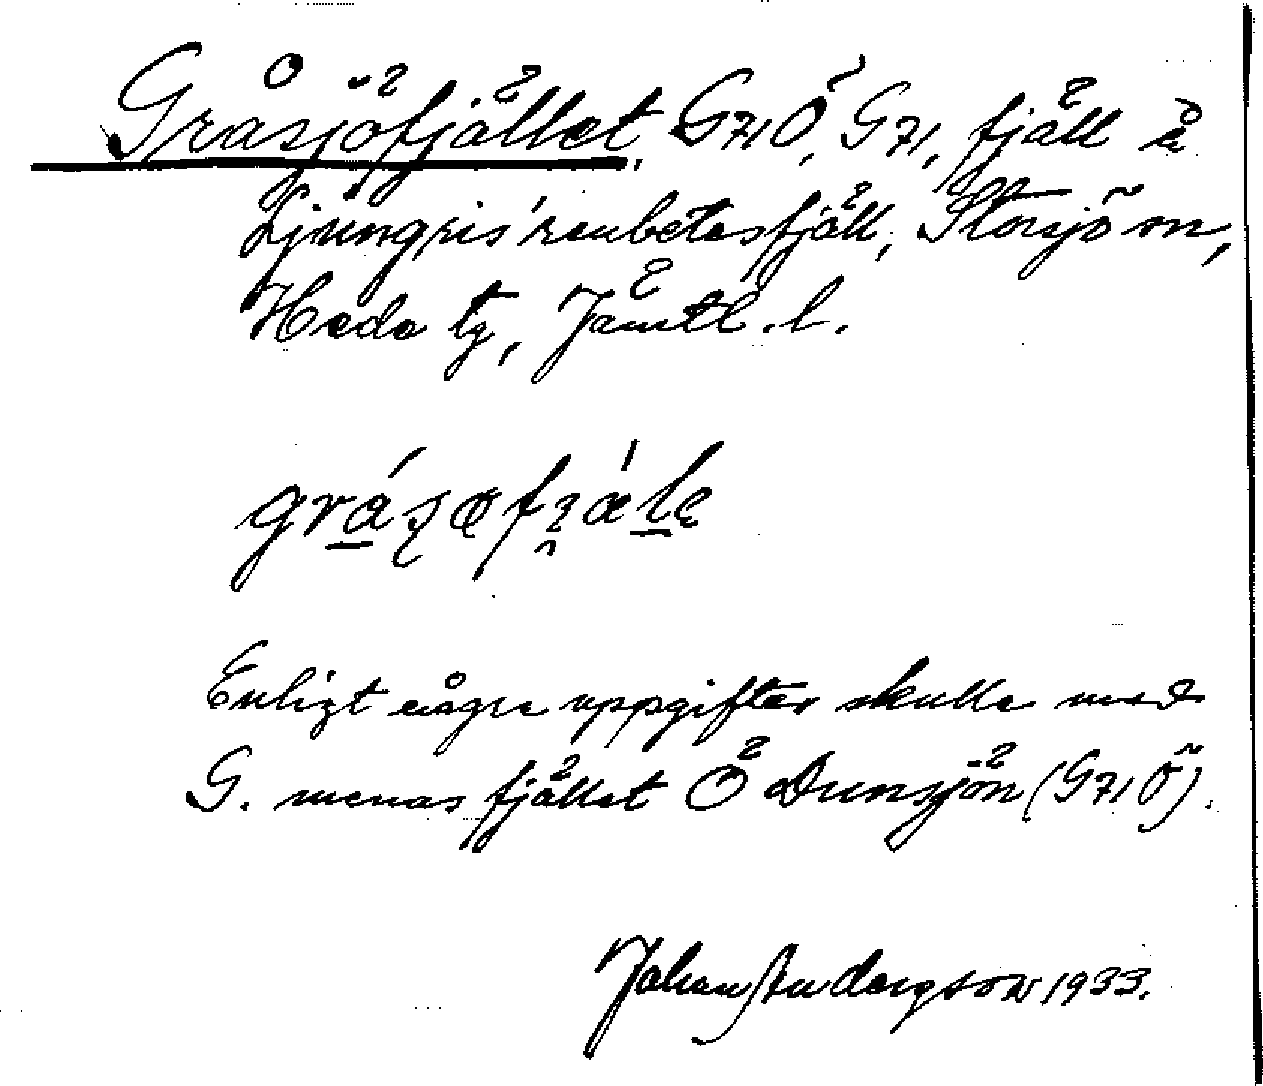 Gråsjöfjället, G71Ö, G71, fjäll å
Ljungris' renbetesfjäll, Storsjö sn,
Hede tg, Jämtl. l.
Enligt några uppgifter skulle med
G. menas fjället Ö Dunsjön (G71Ö).
Johan Andersson 1933.